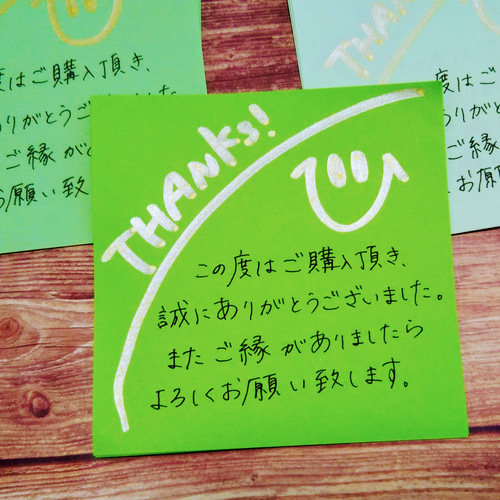 THANKS!
この度はご購入頂き、
誠にありがとうございました。
また ご縁がありましたら
よろしくお願い致します。
度はご購入頂き、
りがとうございました
ご縁がと
お願い致
THANK
度はご
りがとう
ご縁
お願